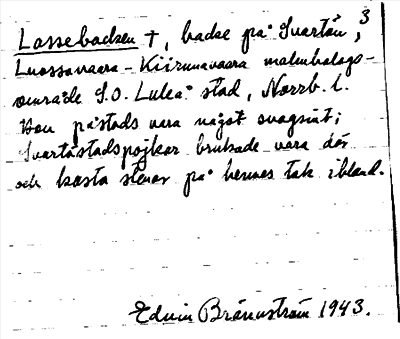 3
Lassebacken †, backe på Svartön,
Luossavaara-Kiirunavaara malmbolags-
område S.O. Luleå stad, Norrb. l.
Hon påstads vara något svagsint;
Svartöstadspojkar brukade vara där
och kasta stenar på hennes tak ibland.
Edvin Brännström 1943.